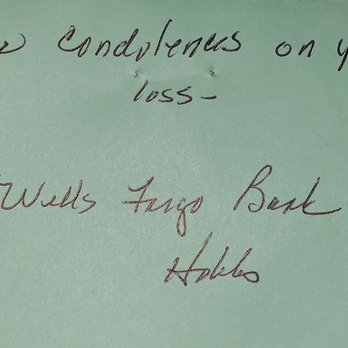 condolences on y
loss-
Wells Fargo Bank
Hobbs